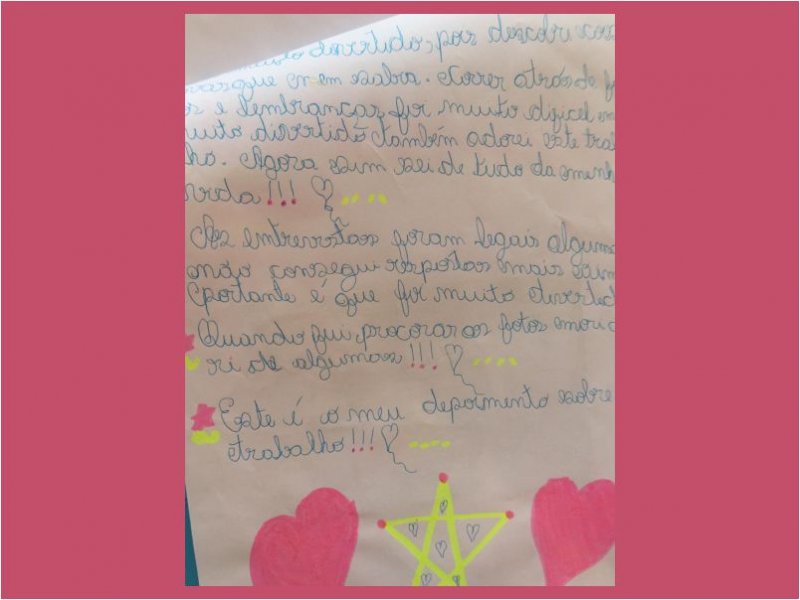 divertido, pois descobri
que nem sabia. Correr atrás de f
os e lembranças foi muito dificel m
uito divertido também adorei este tra
ho. Agora sim sei de tudo da minh
vida!!!
As entrevistas foram legais alguma
não consegui respostas mais o im
portante é que foi muito divertid
Quando fui procorar as fotos morri
ri de algumas!!!
Este é o meu depoimento sobre
trabalho!!!